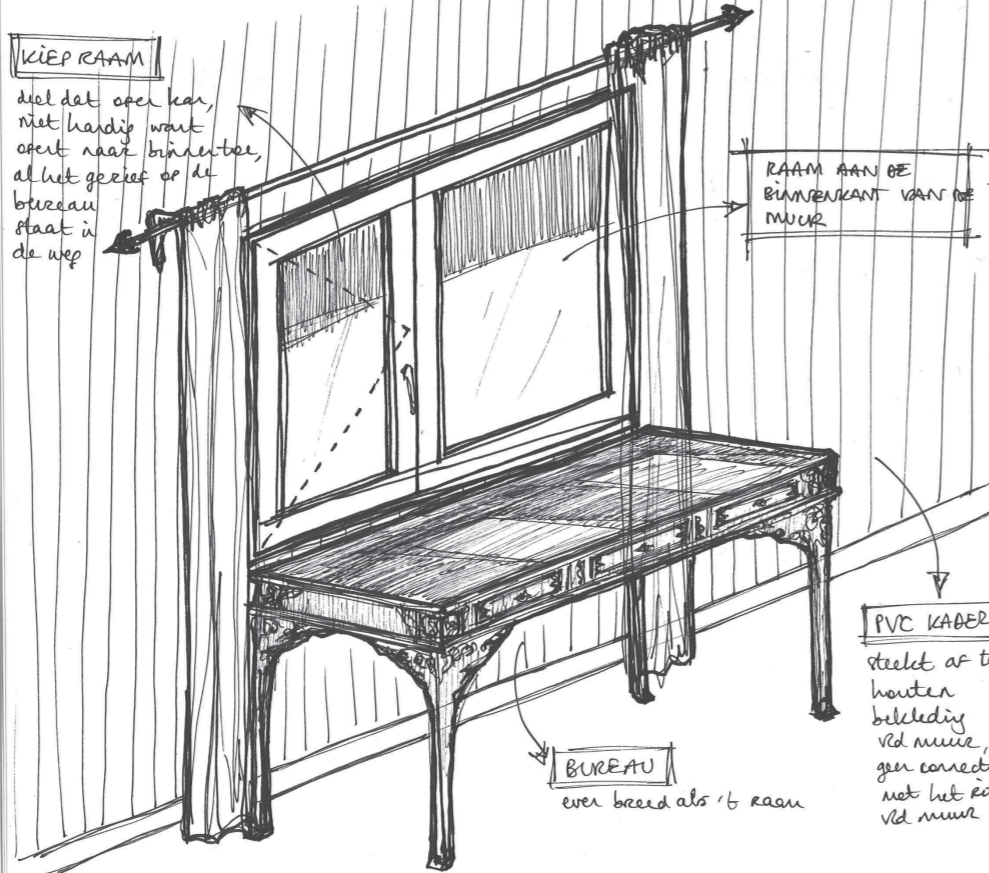 KIEP RAAM
deel dat open kan,
niet handig want
opent naar binnen toe,
al het gerief op de
bureau
staat in
de weg
RAAM AAN DE
BINNENKANT VAN DE
MUUR
PVC KADER
steekt af t
houten
bekleding
vd muur,
geen connect
met het rit
vd muur
BUREAU
even breed als 't raam